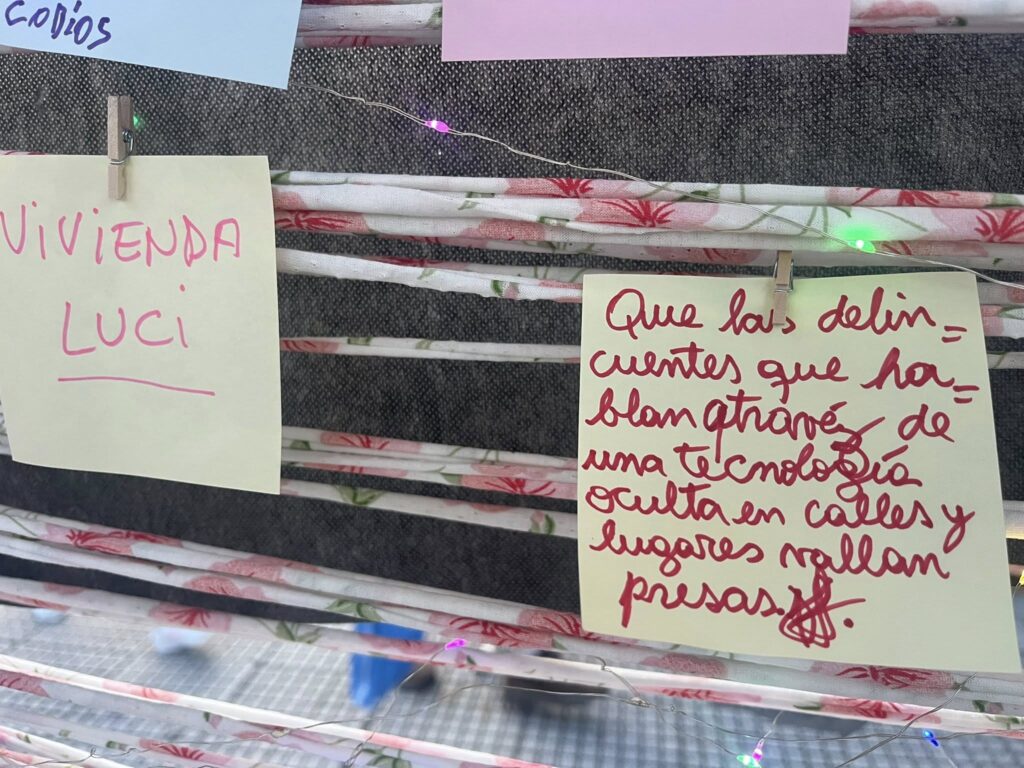 codios
VIVIENDA
LUCI
Que las delin=
cuentes que ha=
blan através de
una tecnología
oculta en calles y
lugares vallan
presas.